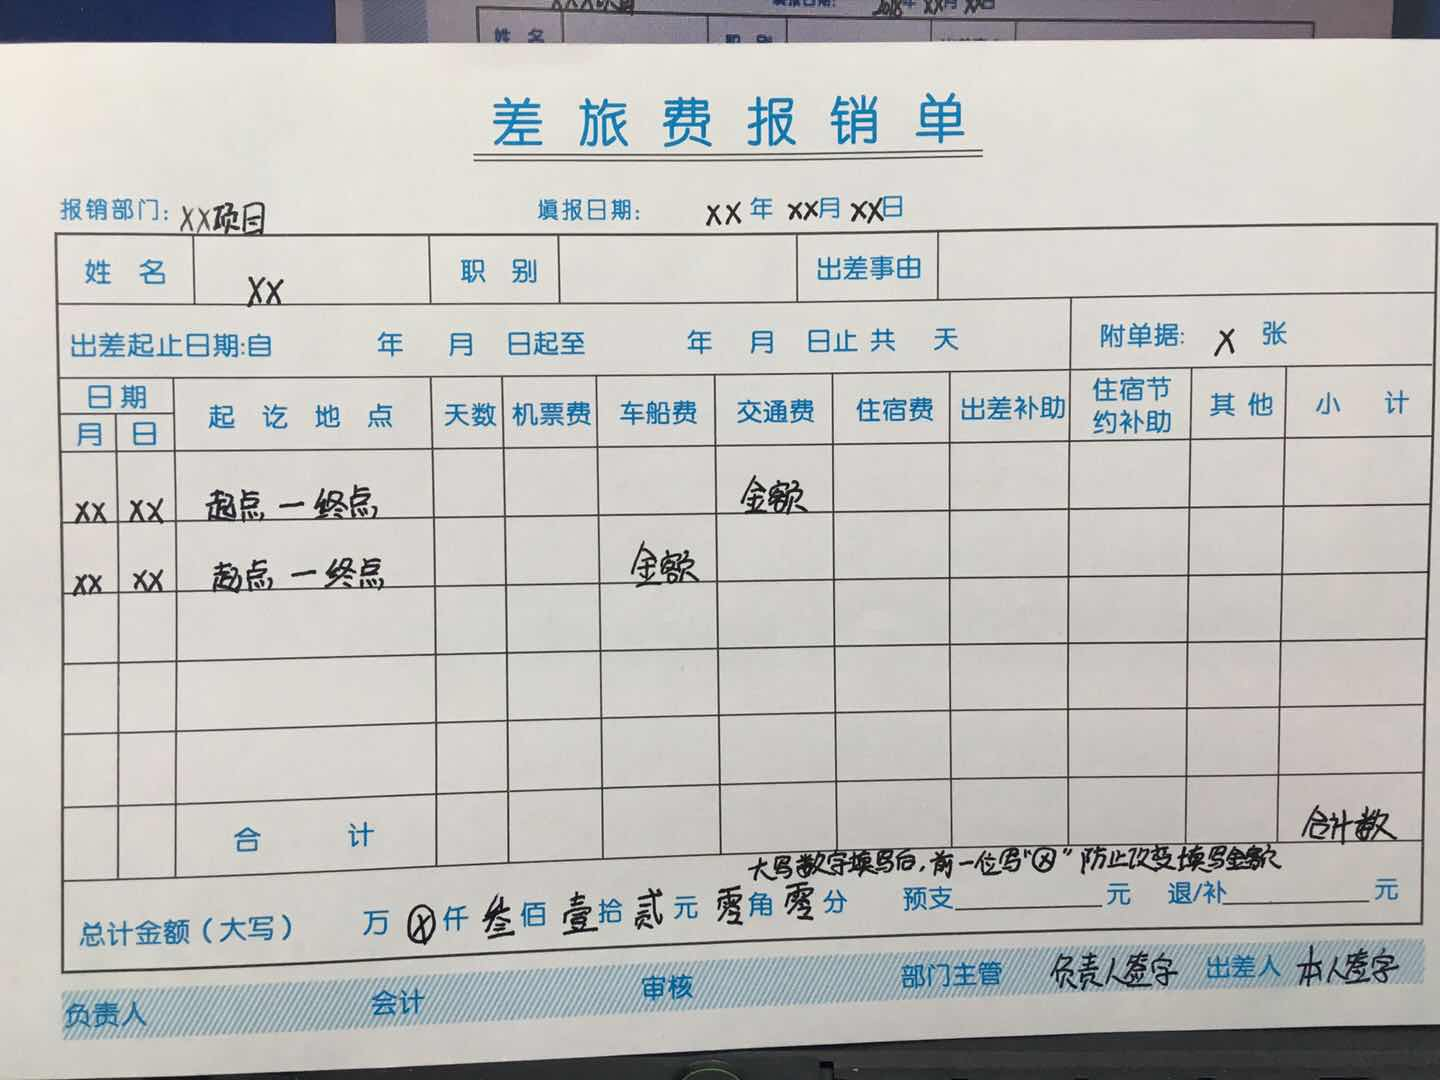 姓 名 职 别
填报日期: 2018年 XX月 XX日
差旅费报销单
报销部门: XX项目 填报日期: XX年 XX月 XX日
姓 名 XX 职 别 出差事由
出差起止日期:自 年 月 日起至 年 月 日止 共 天 附单据: X 张
日期 起讫地点 天数 机票费 车船费 交通费 住宿费 出差补助 住宿节约补助 其他 小 计
月 日
XX XX 起点 — 终点 金额
XX XX 起点 — 终点 金额
合 计 合计数
大写数字填写后,前一位写"ⓧ"防止改变填写金额
总计金额(大写) 万 ⓧ仟 叁佰 壹拾 贰元 零角 零分 预支 元 退/补 元
负责人 会计 审核 部门主管 负责人签字 出差人 本人签字